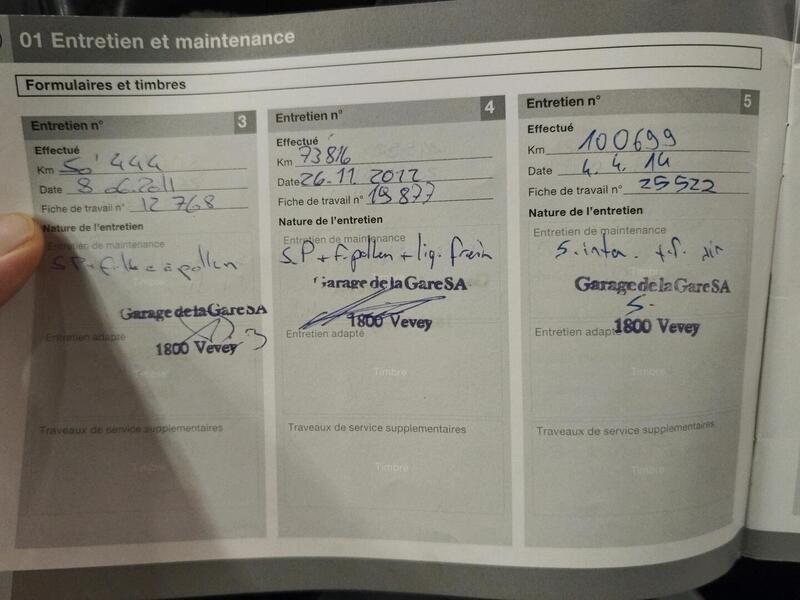 01 Entretien et maintenance
Formulaires et timbres
Entretien n° 3
Effectué
Km 50'444
Date 8 06.2011
Fiche de travail n° 12 768
Nature de l'entretien
Entretien de maintenance
SP + filtre à pollen
Garage de la Gare SA
Entretien adapté
1800 Vevey
Timbre
Traveaux de service supplementaires
Timbre
Entretien n° 4
Effectué
Km 73816
Date 26.11.2012
Fiche de travail n° 19877
Nature de l'entretien
Entretien de maintenance
SP + f. pollen + liq. frein
Garage de la Gare SA
1800 Vevey
Entretien adapté
Timbre
Traveaux de service supplementaires
Timbre
Entretien n° 5
Effectué
Km 100699
Date 4.4.14
Fiche de travail n° 25522
Nature de l'entretien
Entretien de maintenance
S. inter. + f. air
Garage de la Gare SA
Entretien adapté 1800 Vevey
Timbre
Traveaux de service supplementaires
Timbre